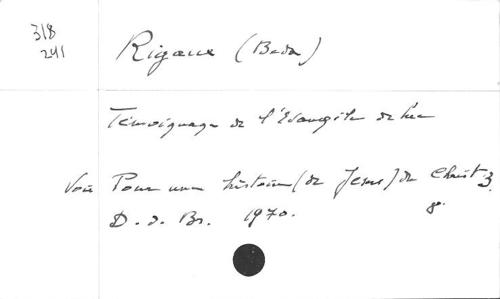 318
241
Rigaux (Beda)
Témoignage de l'Evangile de Luc
Voir Pour une histoire (de Jesus) du Christ 3
D. d. Br. 1970. 8°.